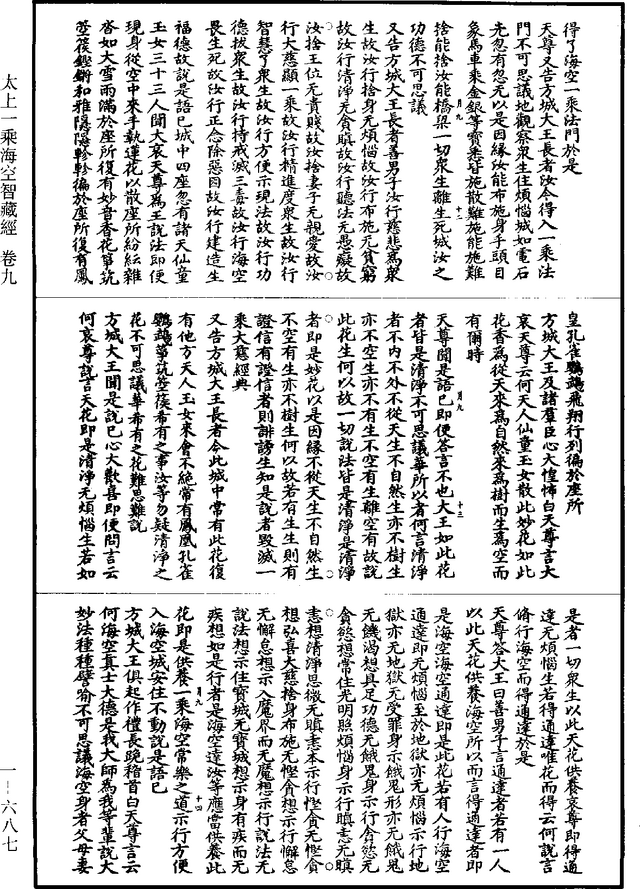 太上一乘海空智藏經 卷九
一—六八七
得了海空一乘法門於是
天尊又告方城大王長者汝今得入一乘法
門不可思議地觀察眾生住煩惱城如電石
光忽有忽无以是因緣汝能布施身手頭目
象馬車乘金銀等寶悉皆施散難施能施難
捨能捨汝能橋梁一切眾生離生死城汝之
功德不可思議
又告方城大王長者善男子汝行慈悲為眾
生故汝行捨身无煩惱故汝行布施无貧窮
故汝行清淨无貪瞋故汝行聽法无愚癡故
汝捨王位无貴賤故汝捨妻子无親愛故汝
行大慈顯一乘故汝行精進度眾生故汝行
智慧了眾生故汝行方便示現法故汝行功
德拔眾生故汝行持戒滅三毒故汝行海空
畏生死故汝行正念除惡因故汝行建造生
福德故說是語已城中四座忽有諸天仙童
玉女三十三人聞大哀天尊為王說法即便
現身從空中來手執蓮花以散座所紛紜雜
沓如大雪雨滿於座所復有妙音香花箏筑
箜篌鏗鏘和雅隱隱軫軫徧於座所復有鳳
皇孔雀鸚鵡飛翔行列徧於座所
方城大王及諸群臣心大惶怖白天尊言大
哀天尊云何天人仙童玉女散此妙花如此
花香為從天來為自然來為樹而生為空而
有爾時
天尊聞是語已即便答言不也大王如此花
者皆是清淨不可思議華所以者何言清淨
者不內不外不從天生不自然生亦不樹生
亦不空生亦不有生不空有生離空有故說
此花生何以故一切說法皆是清淨是清淨
者即是妙花以是因緣不從天生不自然生
不空有生亦不樹生何以故若有生生則有
證信有證信者則誹謗生知是說者毀滅一
乘大乘經典
又告方城大王長者今此城中常有此花復
有他方天人玉女來會不絕常有鳳凰孔雀
鸚鵡箏筑箜篌希有之事汝等勿疑清淨之
花不可思議華希有之花難思難說
方城大王聞是說已心大歡喜即便問言云
何哀尊說言天花即是清淨无煩惱生若如
是者一切眾生以此天花供養哀尊即得通
達无煩惱生若得通達唯花而得云何說言
脩行海空而得通達於是
天尊答大王曰善男子言通達者若有一人
以此天花供養海空所以而言得通達者即
是海空海空通達即是此花若有人行海空
通達即无煩惱至於地獄亦无煩惱示行地
獄亦无地獄无受罪身示餓鬼形亦无餓鬼
无饑渴想具足功德无餓鬼身示行貪慾无
貪慾想常住光明照煩惱身示行瞋恚无瞋
恚想清淨思微无瞋恚本示行慳貪无慳貪
想弘喜大慈捨身布施无慳貪想示行懈怠
无懈怠想示入魔界而无魔想示行說法无
說法想示住寶城无寶城想示身有疾而无
疾想如是行者是海空達汝等應當供養此
花即是供養一乘海空常樂之道示行方便
入海空城安住不動說是語已
方城大王俱起作禮長跪稽首白天尊言云
何海空真士大德是我大師為我等輩說大
妙法種種譬喻不可思議海空身者父母妻